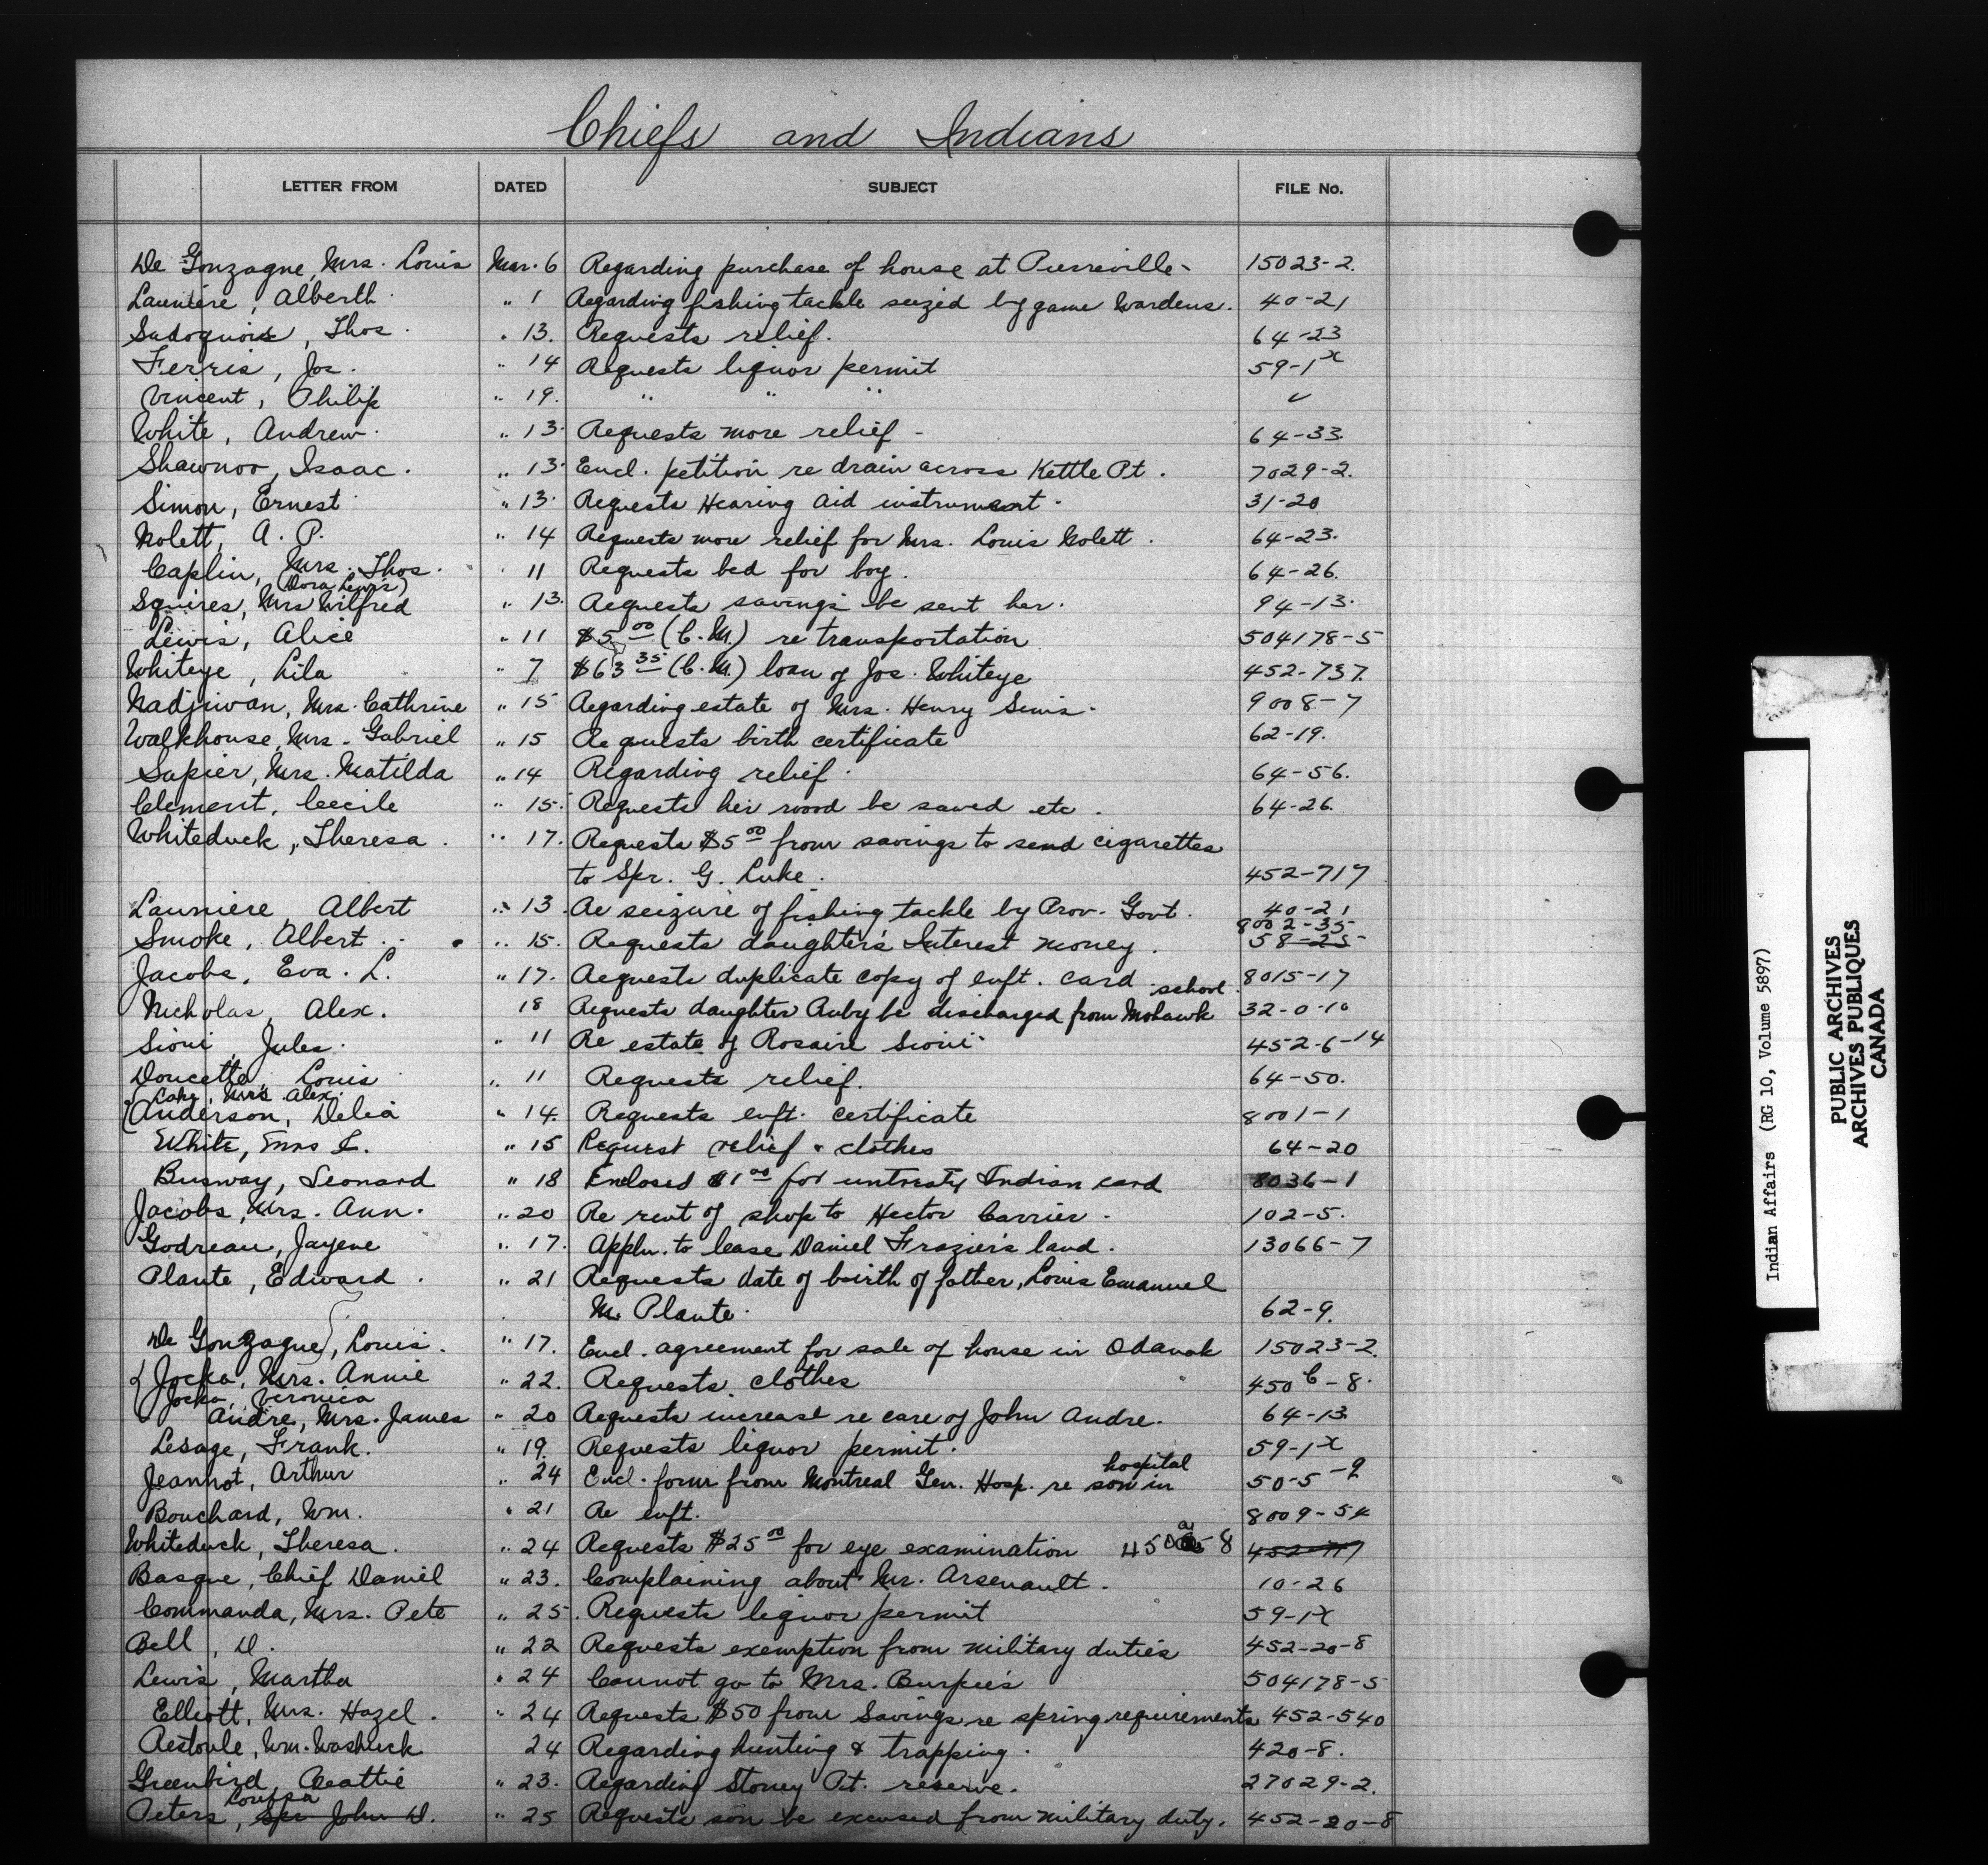 Chiefs and Indians
LETTER FROM DATED SUBJECT FILE No.
De Gonzague, Mrs. Louis Mar. 6 Regarding purchase of house at Pierreville- 15023-2.
Launiere, Alberth " 1 Regarding fishing tackle seized by game Wardens. 40-21
Sadoquois, Thos. " 13. Requests relief. 64-23
Ferris, Jos. " 14 Requests liquor permit 59-1x
Vincent, Philip " 19. " " " ✓
White, Andrew. " 13. Requests more relief - 64-33.
Shawnoo, Isaac. " 13. Encl. petition re drain across Kettle Pt. 7029-2.
Simon, Ernest " 13. Requests Hearing aid instrument. 31-20
Nolett, A. P. " 14 Requests more relief for Mrs. Louis Nolett. 64-23.
Caplin, Mrs. Thos. " 11 Requests bed for boy. 64-26.
(Dora Lewis)
Squires, Mrs Wilfred " 13. Requests savings be sent her. 94-13.
Lewis, Alice " 11 $5 00 (C.M.) re transportation 504178-5
Whiteye, Lila " 7 $63 35 (C.M.) loan of Jos. Whiteye 452-737.
Nadjiwan, Mrs. Cathrine " 15 Regarding estate of Mrs. Henry Simis. 9008-7
Walkhouse, Mrs. Gabriel " 15 Requests birth certificate 62-19.
Sapier, Mrs. Matilda " 14 Regarding relief. 64-56.
Clement, Cecile " 15. Requests her wood be sawed etc. 64-26.
Whiteduck, Theresa. " 17. Requests $5 00 from savings to send cigarettes
to Spr. G. Luke. 452-717
Launiere, Albert " 13. Re seizure of fishing tackle by Prov. Govt. 40-21
8002-35
Smoke, Albert. " 15. Requests daughter's Interest money. 58-25
Jacobs, Eva. L. " 17. Requests duplicate copy of enft. card 8015-17
school.
Nicholas, Alex. 18 Requests daughter Ruby be discharged from Mohawk 32-0-10
Sioui, Jules. " 11 Re estate of Rosaire Sioui. 452-6-14
Doucette, Louis " 11 Requests relief. 64-50.
Lake, Mrs. Alex.
Anderson, Delia " 14. Requests enft. certificate 8001-1
White, Mrs L. " 15 Request relief & clothes 64-20
Busway, Leonard " 18 Enclosed $1 00 for untreaty Indian card 8036-1
Jacobs, Mrs. Ann. " 20 Re rent of shop to Hector Carrier. 102-5.
Godreau, Jayene " 17. Appln. to lease Daniel Frazier's land. 13066-7
Plante, Edward. " 21 Requests date of birth of father, Louis Emanuel
M. Plante. 62-9.
De Gonzague, Louis. " 17. Encl. agreement for sale of house in Odanak 15023-2.
Jocko, Mrs. Annie " 22. Requests clothes 450 C-8.
Jocko, Veronica
Andre, Mrs. James " 20 Requests increase re care of John Andre. 64-13
Lesage, Frank. " 19. Requests liquor permit. 59-1x
hospital
Jeannot, Arthur " 24 Encl. form from Montreal Gen. Hosp. re son in 50-5-9
Bouchard, Wm. " 21 Re enft. 8009-54
Whiteduck, Theresa. " 24 Requests $25 00 for eye examination 450 a-8 452-717
Basque, Chief Daniel " 23. Complaining about Mr. Arsenault. 10-26
Commanda, Mrs. Pete " 25. Requests liquor permit 59-1x
Bell, D. " 22 Requests exemption from military duties 452-20-8
Lewis, Martha " 24 Cannot go to Mrs. Burpee's 504178-5
Elliott, Mrs. Hazel. " 24 Requests $50 from Savings re spring requirements 452-540
Restoule, Wm. Washusk 24 Regarding hunting & trapping. 420-8.
Greenbird, Beattie " 23. Regarding Stoney Pt. reserve. 27029-2.
Louisa
Peters, Spr John D. " 25 Requests son be excused from military duty. 452-20-8
Indian Affairs (RG 10, Volume 5897)
PUBLIC ARCHIVES
ARCHIVES PUBLIQUES
CANADA